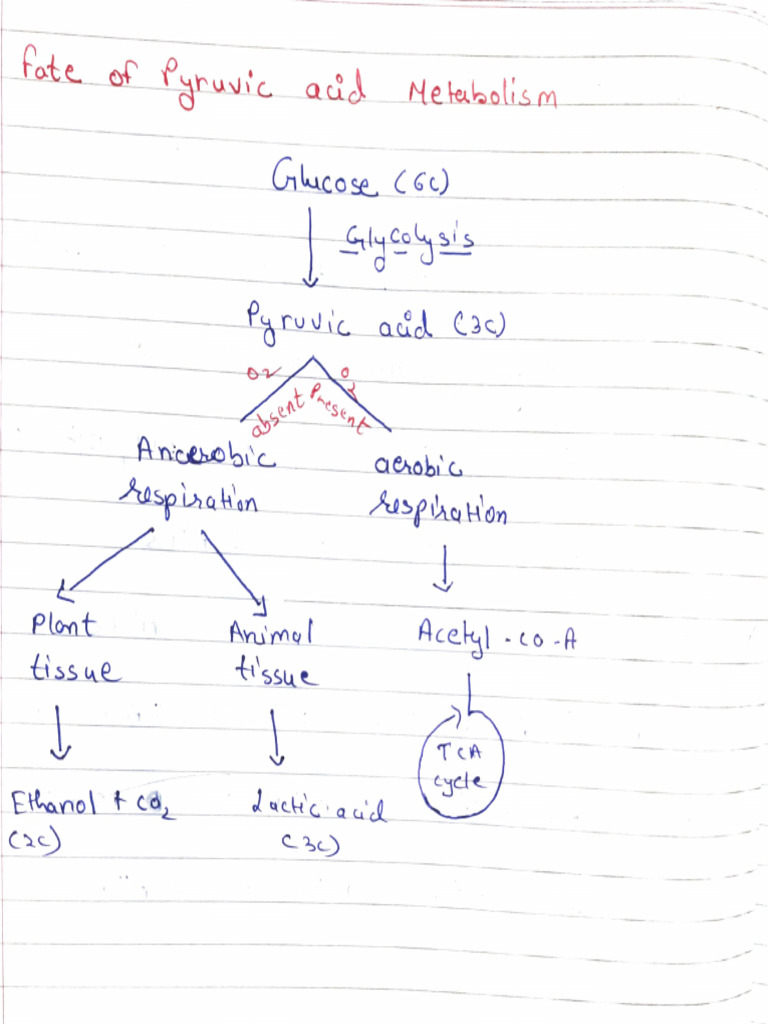 Fate of Pyruvic acid Metabolism
Glucose (6C)
Glycolysis
Pyruvic acid (3C)
O2 absent
O2 Present
Anaerobic
respiration
aerobic
respiration
Plant
tissue
Animal
tissue
Acetyl-co-A
TCA
cycle
Ethanol + CO2
(2C)
Lactic acid
(3C)